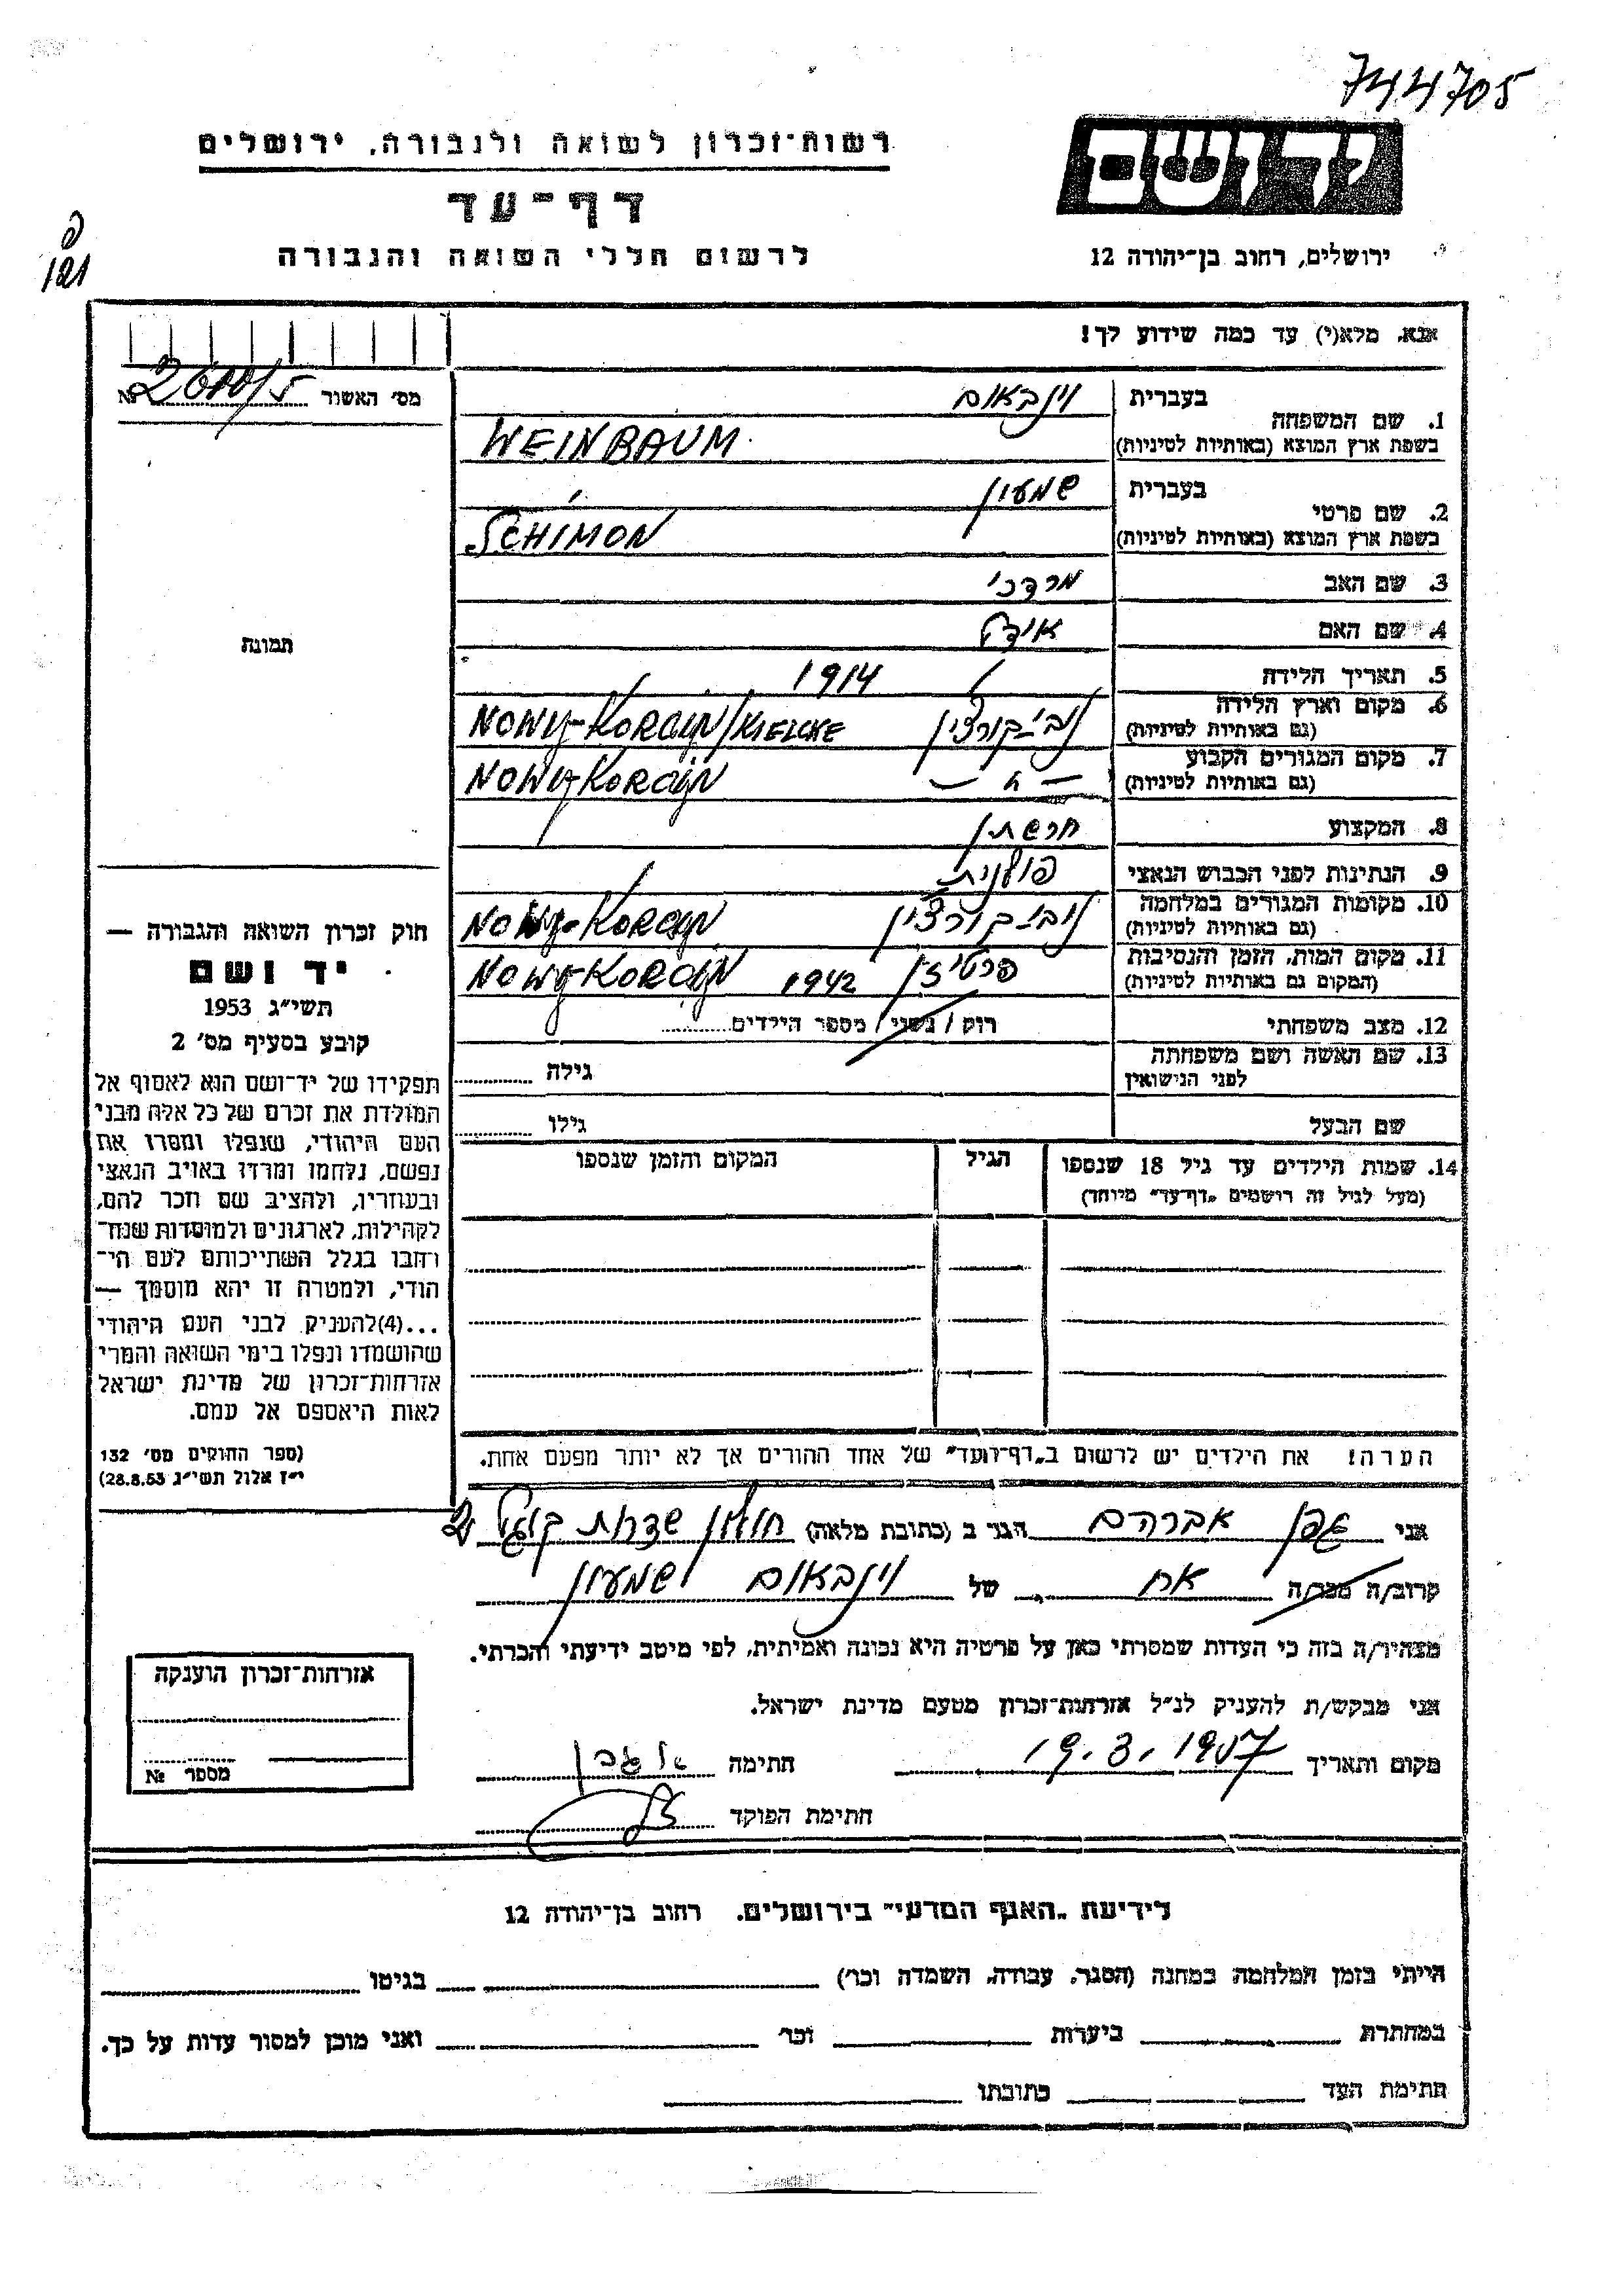 744705
רשות־זכרון לשואה ולגבורה, ירושלים
ידושם
דף־עד
לרשום חללי השואה והגבורה
ירושלים, רחוב בן־יהודה 12
פ
121
אנא, מלא(י) עד כמה שידוע לך!
מס׳ האשור №
1. שם המשפחה
בעברית וינבאום
בשפת ארץ המוצא (באותיות לטיניות) WEINBAUM
2. שם פרטי
בעברית שמעון
בשפת ארץ המוצא (באותיות לטיניות) SCHIMON
3. שם האב מרדכי
4. שם האם אידל
תמונה
5. תאריך הלידה 1914
6. מקום וארץ הלידה נובי-קורצין NOWY-KORCZYN/KIELCKE
(גם באותיות לטיניות)
7. מקום המגורים הקבוע — " — NOWY-KORCZYN
(גם באותיות לטיניות)
8. המקצוע חרשתן
9. הנתינות לפני הכבוש הנאצי פולנית
10. מקומות המגורים במלחמה נובי-קורצין NOWY-KORCZYN
(גם באותיות לטיניות)
11. מקום המות, הזמן והנסיבות פרטיזן 1942 NOWY-KORCZYN
(המקום גם באותיות לטיניות)
12. מצב משפחתי רוק / נשוי / מספר הילדים
13. שם האשה ושם משפחתה
לפני הנישואין
גילה
שם הבעל גילו
14. שמות הילדים עד גיל 18 שנספו
(מעל לגיל זה רושמים „דף־עד״ מיוחד)
הגיל
המקום והזמן שנספו
הערה! את הילדים יש לרשום ב„דף־העד״ של אחד ההורים אך לא יותר מפעם אחת.
חוק זכרון השואה והגבורה —
יד ושם
תשי״ג 1953
קובע בסעיף מס׳ 2
תפקידו של יד־ושם הוא לאסוף אל
המולדת את זכרם של כל אלה מבני
העם היהודי, שנפלו ומסרו את
נפשם, נלחמו ומרדו באויב הנאצי
ובעוזריו, ולהציב שם וזכר להם,
לקהילות, לארגונים ולמוסדות שנח־
רבו בגלל השתייכותם לעם הי־
הודי, ולמטרה זו יהא מוסמך —
...(4)להעניק לבני העם היהודי
שהושמדו ונפלו בימי השואה והמרי
אזרחות־זכרון של מדינת ישראל
לאות היאספם אל עמם.
(ספר החוקים מס׳ 132
י״ז אלול תשי״ג 28.8.53)
אני גפן אברהם הגר ב (כתובת מלאה) חולון שדרות קוגל
קרוב/ה מכר/ה אח של וינבאום שמעון
מצהיר/ה בזה כי העדות שמסרתי כאן על פרטיה היא נכונה ואמיתית, לפי מיטב ידיעתי והכרתי.
אני מבקש/ת להעניק לנ״ל אזרחות־זכרון מטעם מדינת ישראל.
מקום ותאריך 19.3.1957 חתימה א גפן
חתימת הפוקד
אזרחות־זכרון הוענקה
מספר №
לידיעת „האגף המדעי״ בירושלים, רחוב בן־יהודה 12
הייתי בזמן המלחמה במחנה (הסגר, עבודה, השמדה וכו׳) בגיטו
במחתרת ביערות וכו׳ ואני מוכן למסור עדות על כך.
חתימת העד כתובתו